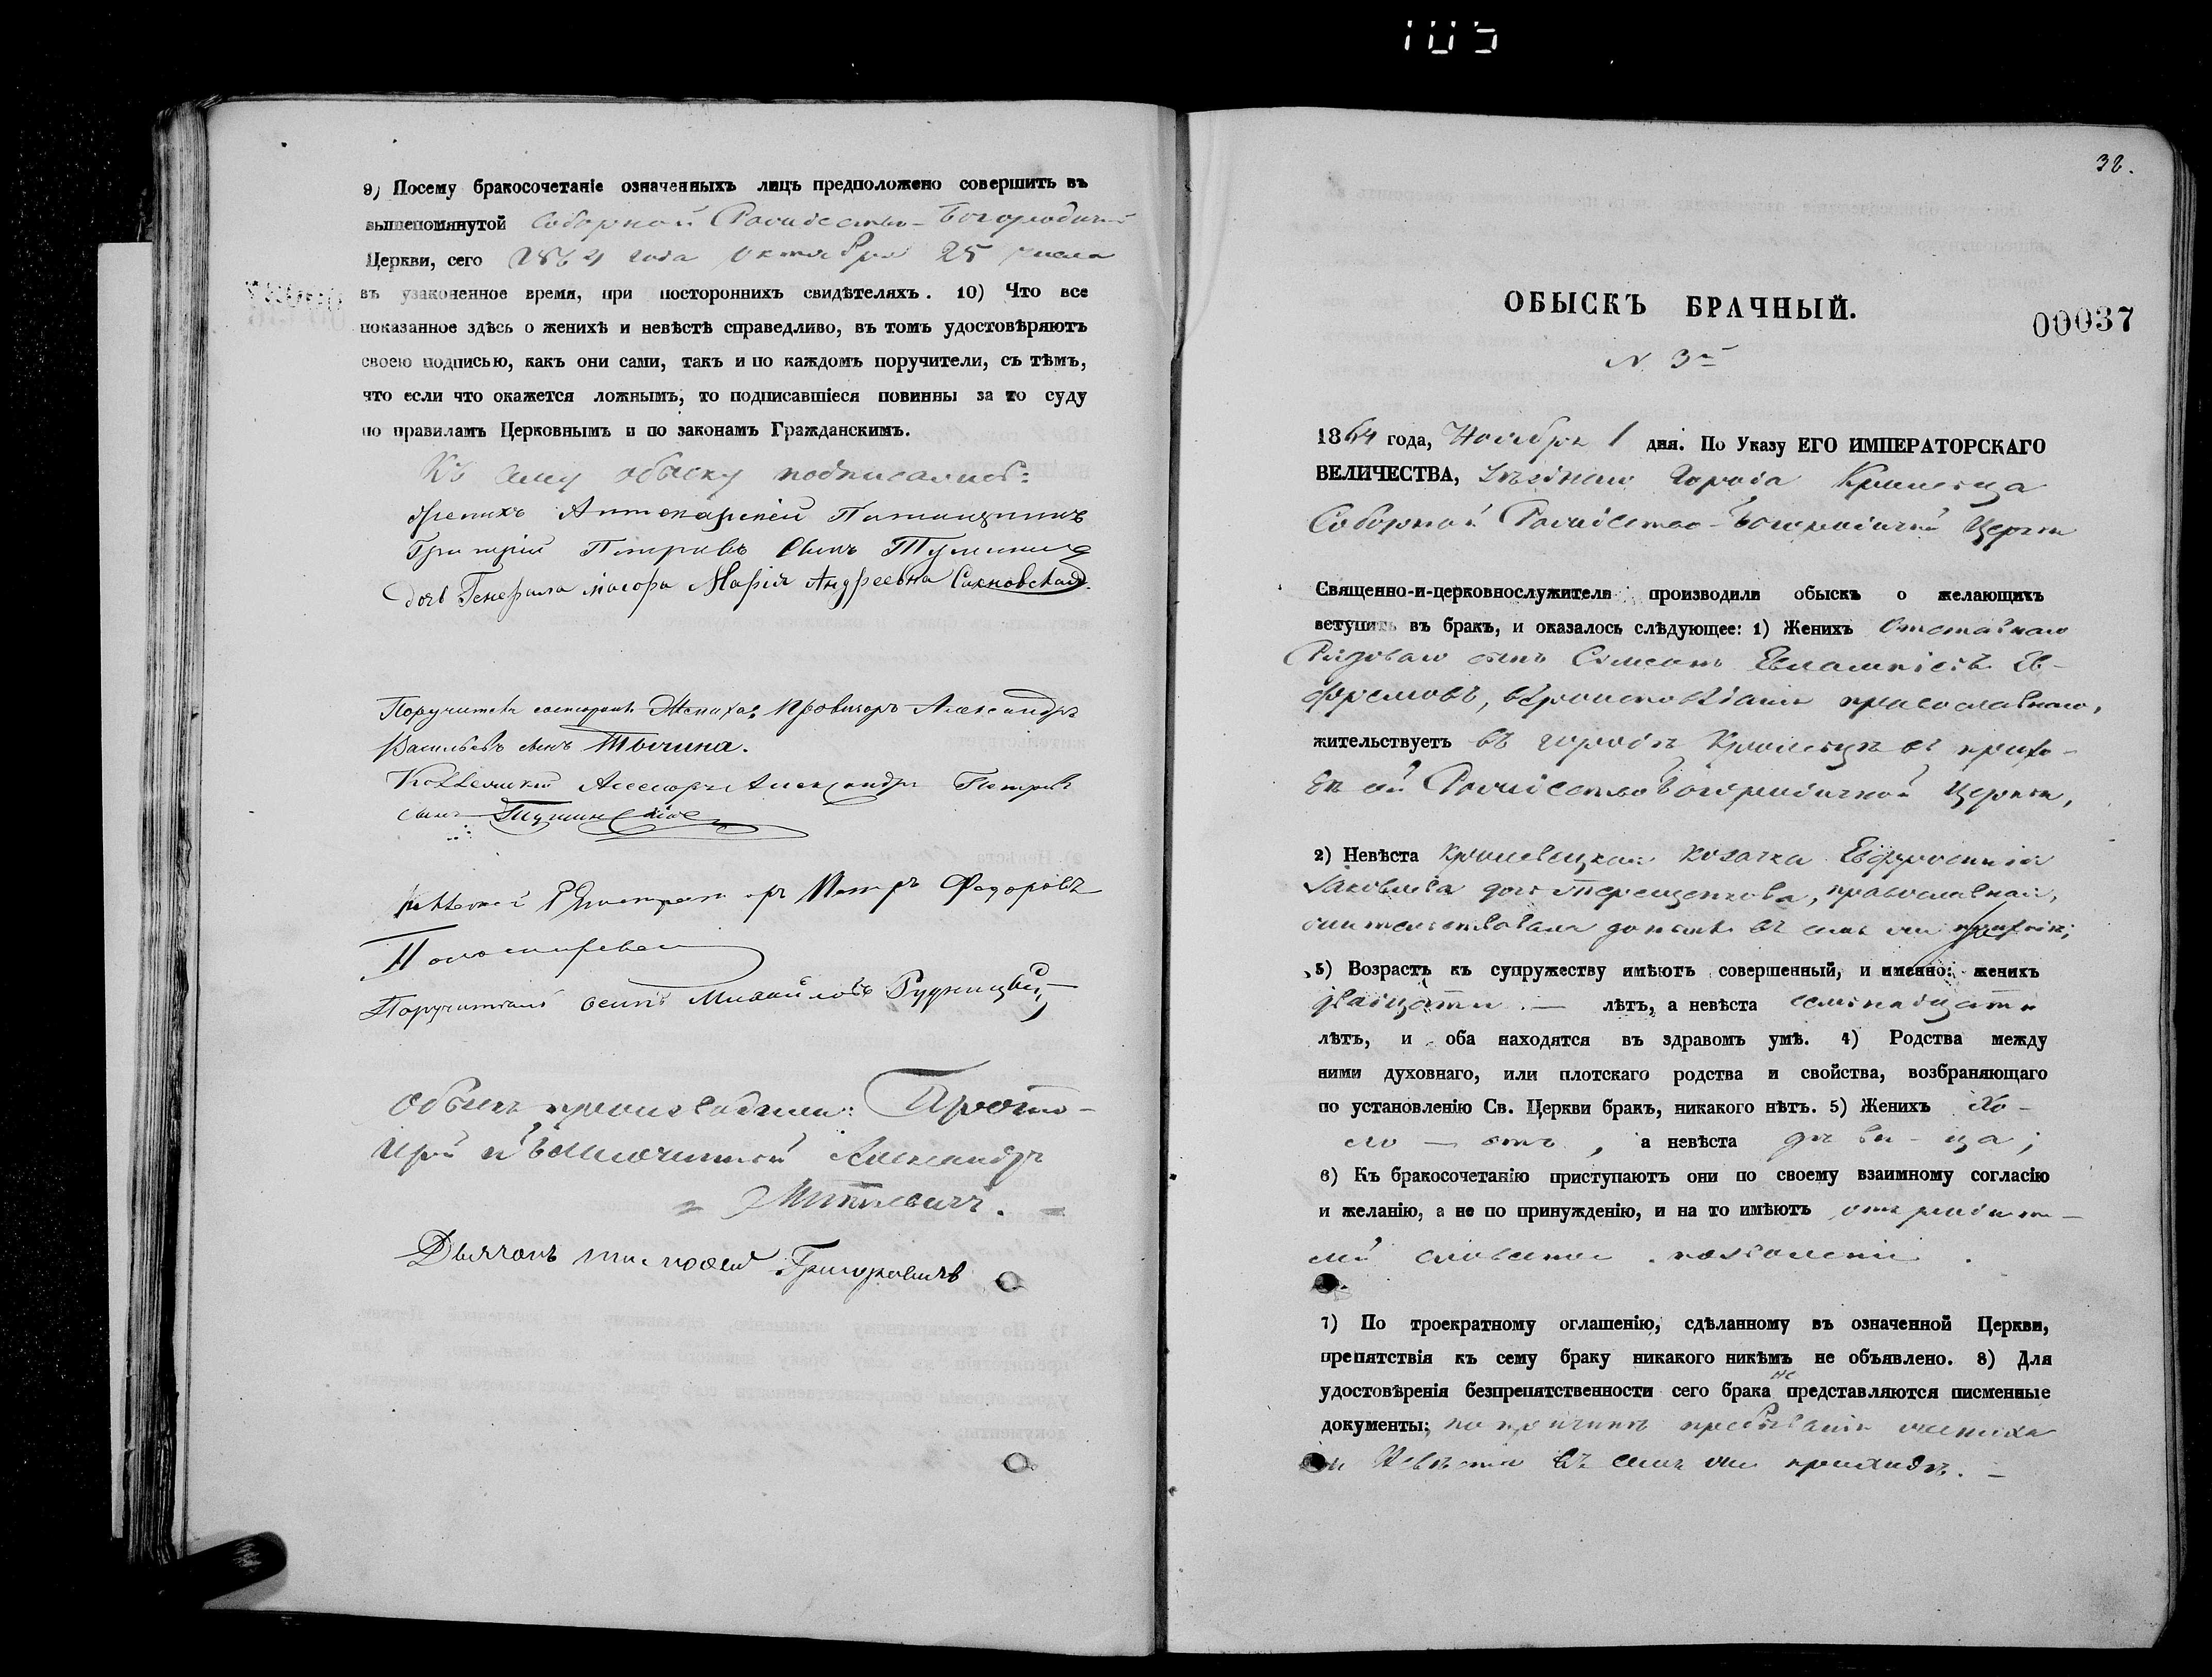 105
9) Посему бракосочетаніе означенныхъ лицъ предположено совершить въ
вышепомянутой Соборной Рождество-Богородичной
Церкви, сего 1864 года Октября 25 числа
въ узаконенное время, при постороннихъ свидѣтеляхъ. 10) Что все
показанное здѣсь о женихѣ и невѣстѣ справедливо, въ томъ удостовѣряютъ
своею подписью, какъ они сами, такъ и по каждомъ поручители, съ тѣмъ,
что если что окажется ложнымъ, то подписавшіеся повинны за то суду
по правиламъ Церковнымъ и по законамъ Гражданскимъ.
Къ сему обыску подписались:
женихъ Аптекарскій
Григорій Петровъ сынъ
дочь Генерала маіора Марія Андреевна Сахновская.
Поручители Жениха, Провизоръ Александръ
Васильевъ сынъ
Коллежскій Ассесоръ Александръ Петровъ
сынъ
Регистраторъ Петръ Федоровъ
Поручитель Осипъ Михайловъ Рудницкій
Обыскъ производили: Прото-
іерей и Благочинный Александръ
Дьячокъ Григоровичъ
38.
ОБЫСКЪ БРАЧНЫЙ.
00037
N 3й
1864 года, Ноября 1 дня. По Указу ЕГО ИМПЕРАТОРСКАГО
ВЕЛИЧЕСТВА, уѣзднаго города Кролевца
Соборной Рождество-Богородичной Церкви
Священно-и-церковнослужители производили обыскъ о желающихъ
вступить въ бракъ, и оказалось слѣдующее: 1) Женихъ Отставнаго
Рядоваго сынъ Симеонъ Евлампіевъ Ев-
фремовъ, вѣроисповѣданія православнаго,
жительствуетъ въ городѣ Кролевцѣ въ прихо-
дѣ Рождество Богородичной Церкви,
2) Невѣста Кролевецкая козачка Евфросинія
Яковлева дочь Терещенкова, православная,
жительствовала донынѣ въ семъ же приходѣ;
3) Возрастъ къ супружеству имѣютъ совершенный, и именно: женихъ
двадцати — лѣтъ, а невѣста семнадцати
лѣтъ, и оба находятся въ здравомъ умѣ. 4) Родства между
ними духовнаго, или плотскаго родства и свойства, возбраняющаго
по установленію Св. Церкви бракъ, никакого нѣтъ. 5) Женихъ хо-
ло — стъ, а невѣста дѣви-ца;
6) Къ бракосочетанію приступаютъ они по своему взаимному согласію
и желанію, а не по принужденію, и на то имѣютъ отъ родите-
лей словесное позволеніе.
7) По троекратному оглашенію, сдѣланному въ означенной Церкви,
препятствія къ сему браку никакого никѣмъ не объявлено. 8) Для
удостовѣренія безпрепятственности сего брака не представляются писменные
документы; по причинѣ пребыванія жениха
и Невѣсты въ семъ же приходѣ. —